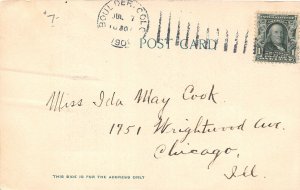 7.
BOULDER, COLO.
JUL 7
190
POST CARD
Miss Ida May Cook.
1751 Wrightwood Ave.
Chicago,
Ill.
THIS SIDE IS FOR THE ADDRESS ONLY